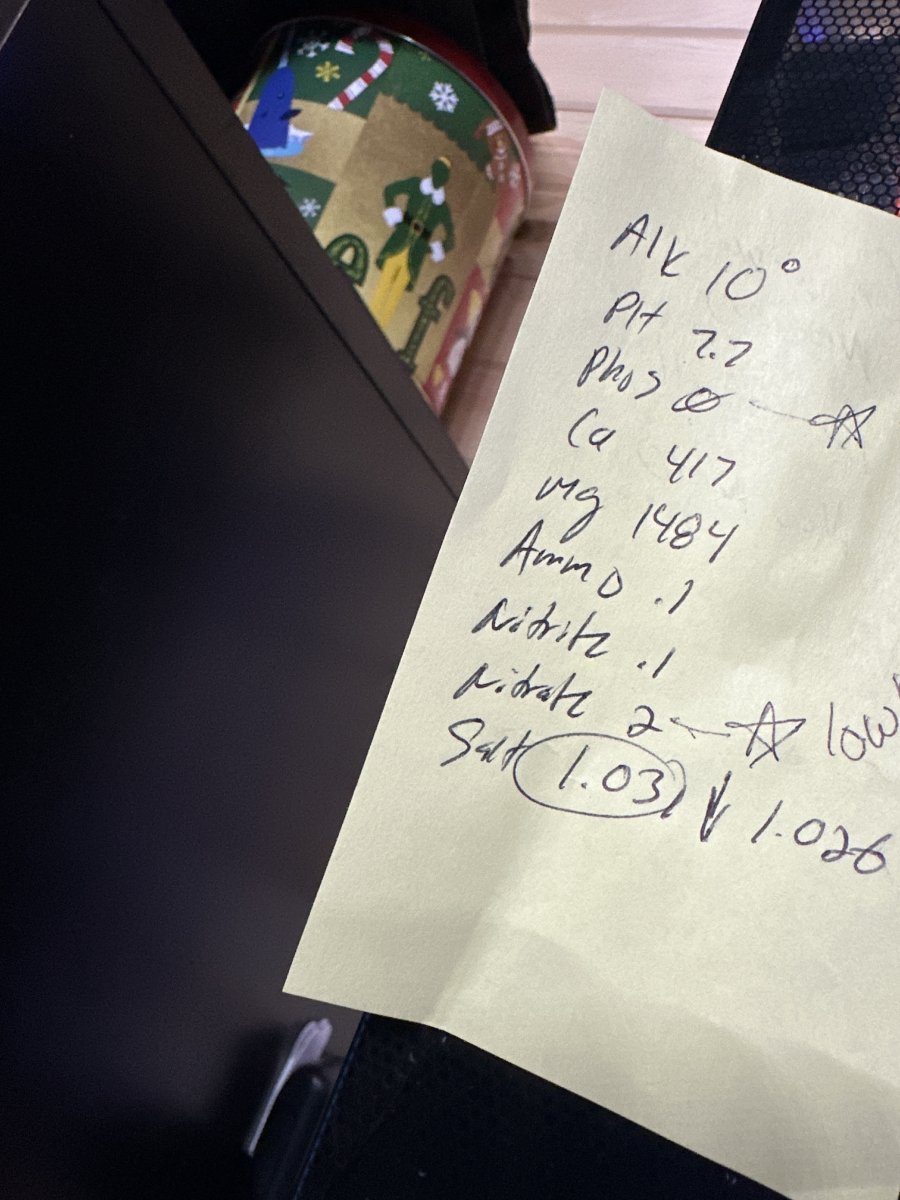 Alk 10°
PH 7.7
Phos Ø
Ca 417
Mg 1484
Ammo .1
Nitrite .1
Nitrate 2 low
Salt 1.03 ↓ 1.026
elf